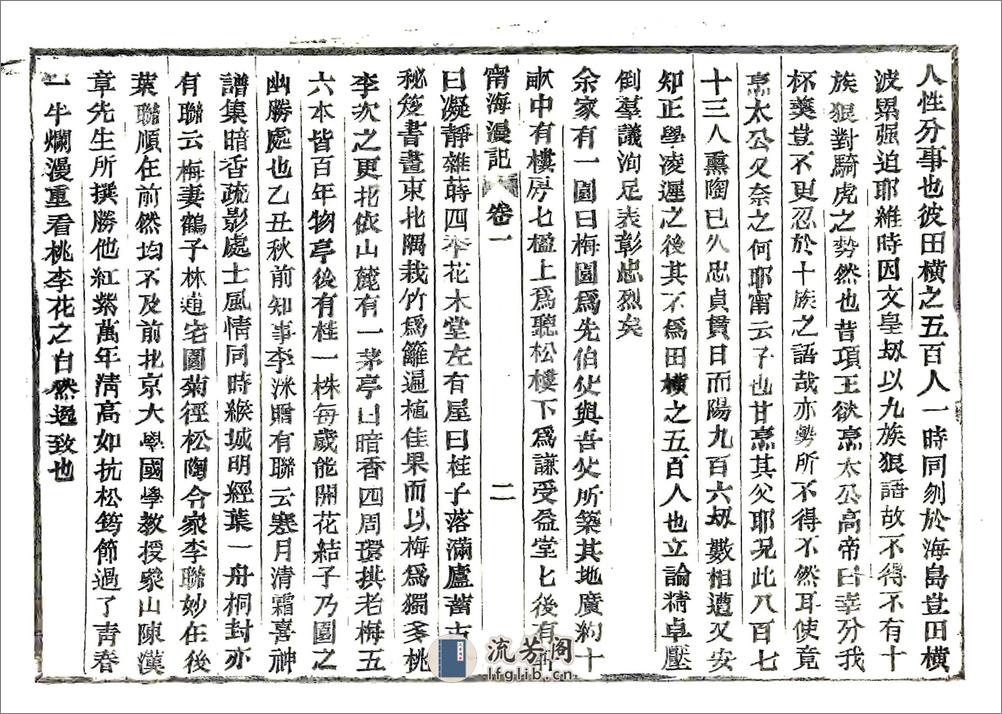 人性分事也彼田橫之五百人一時同刎於海島豈田橫
波累强迫耶維時因文皇刼以九族狠語故不得不有十
族狠對騎虎之勢然也昔項王欲烹太公高帝曰幸分我
杯羮豈不更忍於十族之語哉亦勢所不得不然耳使竟
烹太公又奈之何耶甯云子也甘烹其父耶况此八百七
十三人熏陶已久忠貞貫日而陽九百六刼數相遭又安
知正學凌遲之後其不爲田橫之五百人也立論精卓壓
倒羣議洵足表彰忠烈矣
余家有一園曰梅園爲先伯父與吾父所築其地廣約十
畝中有樓房七楹上爲聽松樓下爲謙受益堂七後有軒
甯海漫記 卷一 二
曰凝靜雜蒔四季花木堂左有屋曰桂子落滿廬蓄古
秘笈書畫東北隅栽竹爲籬遍植佳果而以梅爲獨多桃
李次之更北依山麓有一茅亭曰暗香四周環拱老梅五
六本皆百年物亭後有桂一株每歲能開花結子乃園之
幽勝處也乙丑秋前知事李洣贈有聯云寒月清霜喜神
譜集暗香疏影處士風情同時緱城明經葉一舟桐封亦
有聯云梅妻鶴子林逋宅園菊徑松陶令家李聯妙在後
葉聯順在前然均不及前北京大學國學教授象山陳漢
章先生所撰勝他紅紫萬年淸高如抗松筠節過了靑春
一半爛漫重看桃李花之自然逈致也
流芳阁
lfglib.cn